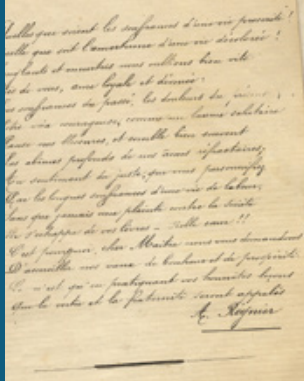 Quelles que soient les souffrances d'une vie
quelle que soit l'amertume d'une vie décolorée !
et meurtris nous oublions bien vite
de vous, âme loyale et
souffrances du passé, les douleurs du
courageux, comme un baume salutaire
nos blessures, et souille bien souvent
Les abîmes profonds de nos âmes réfractaires,
Au sentiment du juste, que vous personnifiez
Car les longues souffrances d'une vie de labeur,
Sans que jamais une plainte contre la
S'échappe de vos lèvres - telle sœur !!
C'est pourquoi, cher Maître nous vous demandons
D'accueillir nos vœux de bonheur et de prospérité
Ce n'est qu'en pratiquant vos honnêtes leçons
Que la vertu et la fraternité seront appelés
A. Régnier